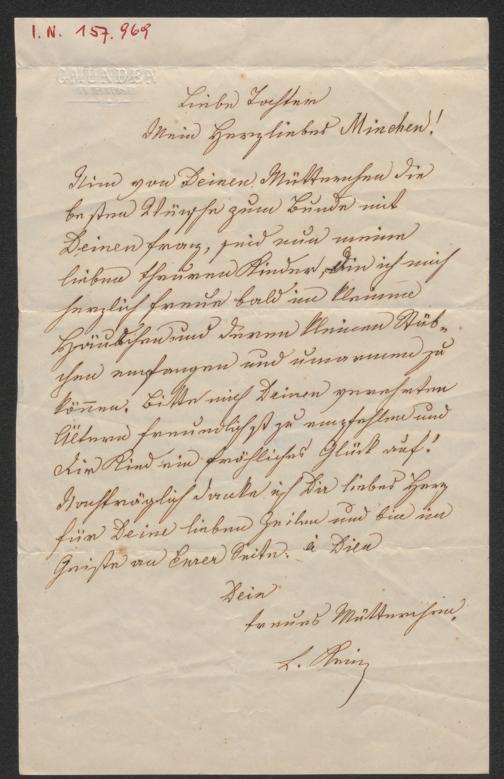 I.N. 157.969
GMUNDEN
Liebe Tochter
Mein Herzliebes Minchen!
Nim von Deinen Mütterchen die
besten Wünsche zum Bunde mit
Deinen franz, seid nun meine
lieben theuren Kinder, Die ich mich
herzlich freue bald im kleinen
Häuschen und deren kleinen Stüb-
chen empfangen und umarmen zu
können. Bitte mich Deinen verehrten
Ältern freundlichst zu empfehlen und
Dir Kind ein fröhliches Glück auf!
Nachträglich danke ich Dir liebes Herz
für Deine lieben Zeilen und bin im
Geiste an Eurer Seite. à Dieu
Dein
treues Mütterchen.
L.